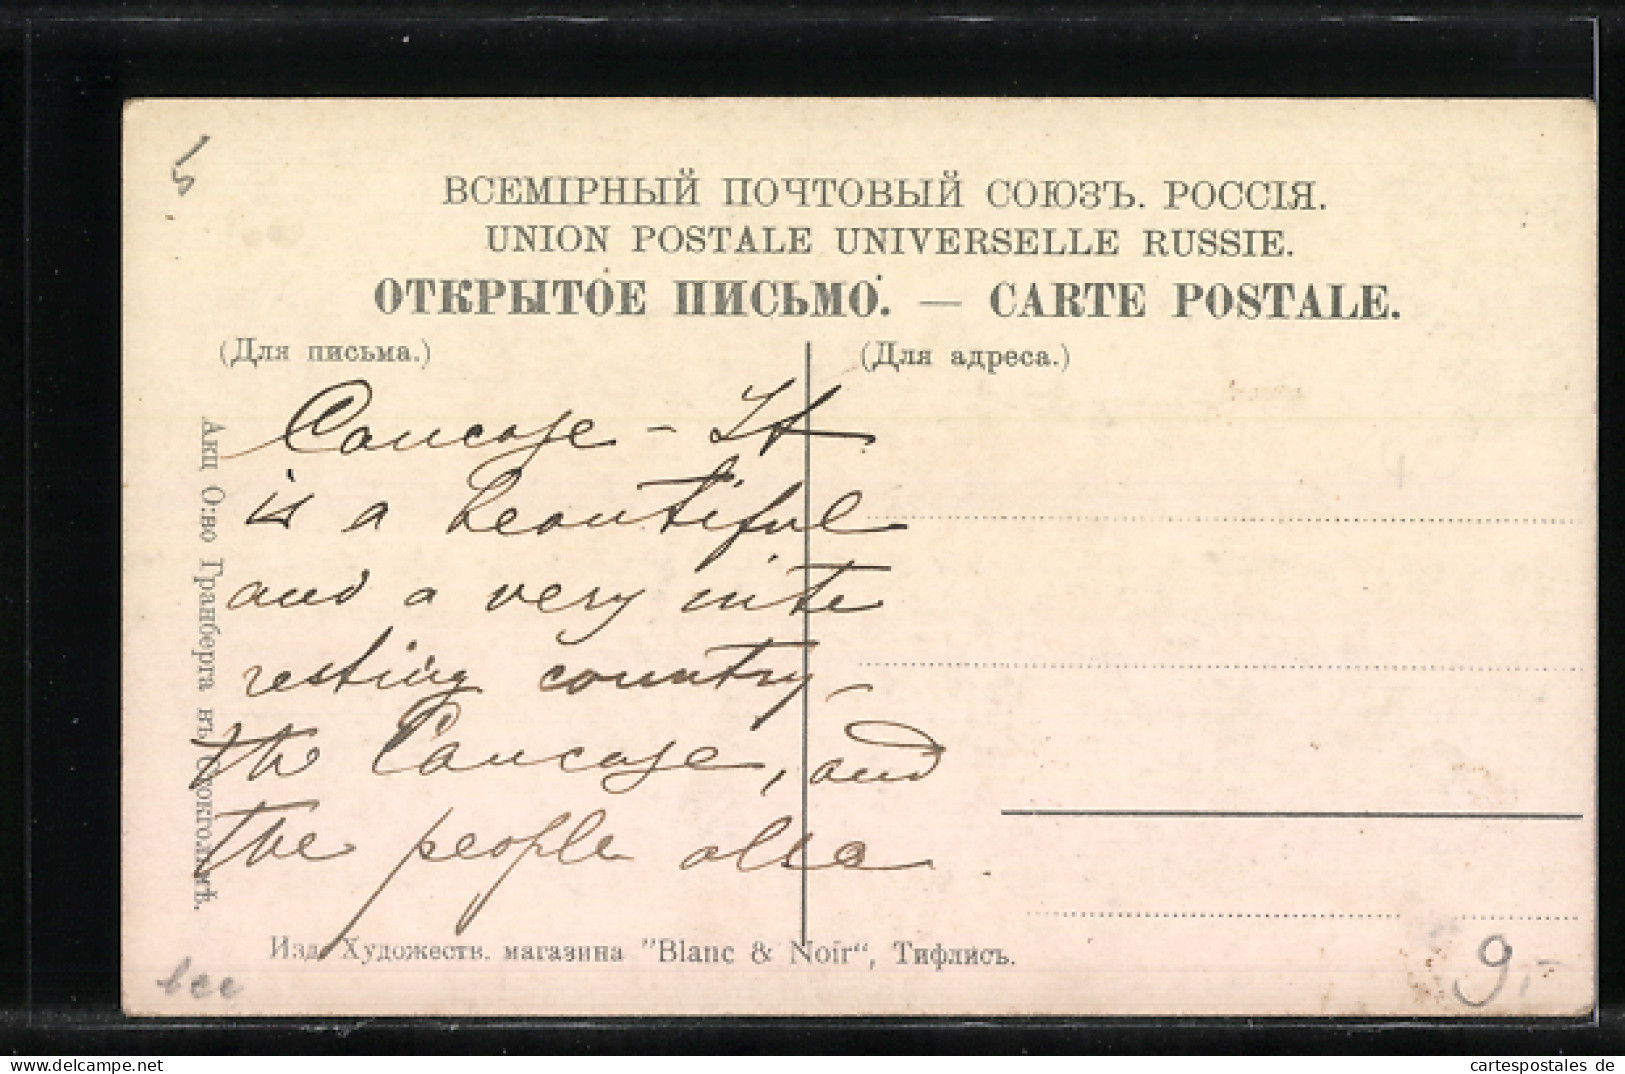 5
ВСЕМІРНЫЙ ПОЧТОВЫЙ СОЮЗЪ. РОССІЯ.
UNION POSTALE UNIVERSELLE RUSSIE.
ОТКРЫТОЕ ПИСЬМО. — CARTE POSTALE.
(Для письма.)
(Для адреса.)
Caucase - It
is a beautiful
and a very inte
resting country
the Caucase, and
the people also
Акц О:во Гранберга въ Стокгольмѣ.
Изд. Художеств. магазина "Blanc & Noir“, Тифлисъ.
9.-
cartespostales de